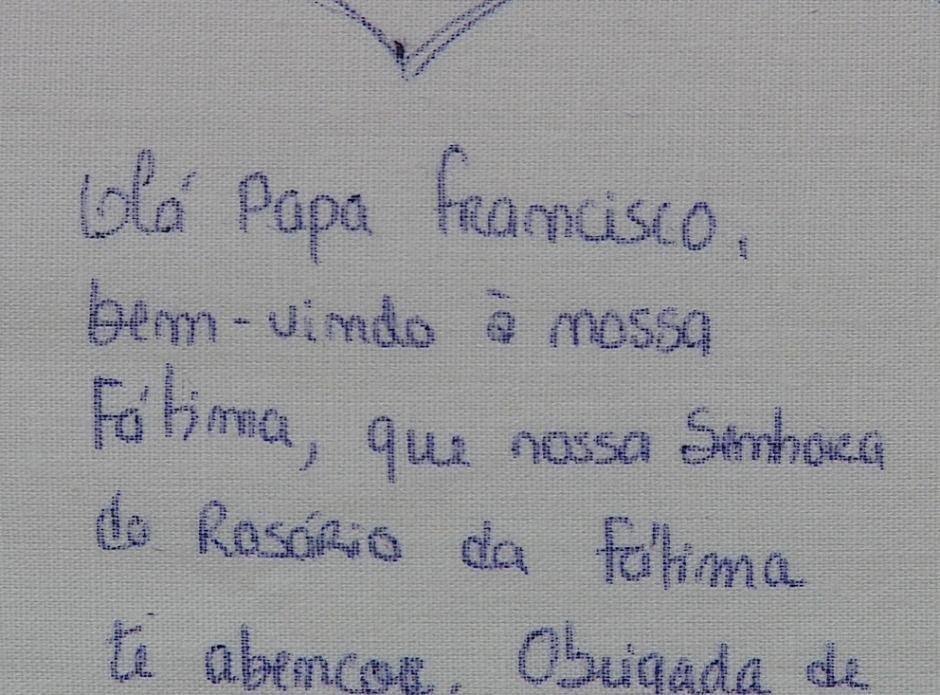 Olá Papa Francisco,
bem-vindo à nossa
Fátima, que nossa Senhora
do Rosário da Fátima
te abençoe. Obrigada de